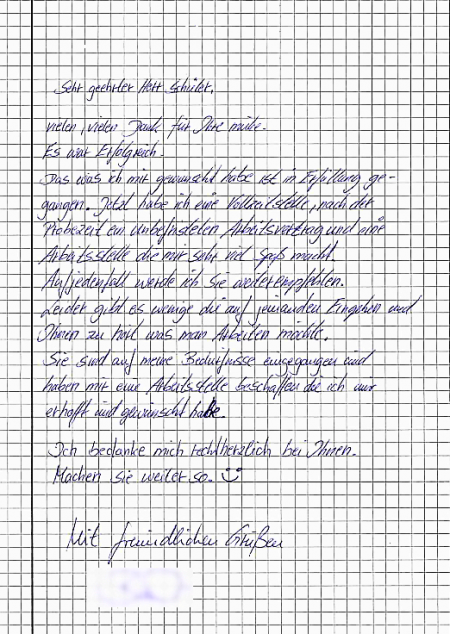 Sehr geehrter Herr Schüler,
vielen, vielen Dank für Ihre mühe.
Es war Erfolgreich.
Das was ich mir gewünscht habe ist in Erfüllung ge-
gangen. Jetzt habe ich eine Vollzeitstelle, nach der
Probezeit ein Unbefristeten Arbeitsvertrag und eine
Arbeitsstelle die mir sehr viel Spaß macht.
Aufjedenfall werde ich Sie weiterempfehlen.
Leider gibt es wenige die auf jemanden Eingehen und
Ihnen zu hört was man Arbeiten möchte.
Sie sind auf meine Bedürfnisse eingegangen und
haben mir eine Arbeitsstelle beschaffen die ich mir
erhofft und gewünscht habe.
Ich bedanke mich rechtherzlich bei Ihnen.
Machen sie weiter so.
Mit freundlichen Grüßen